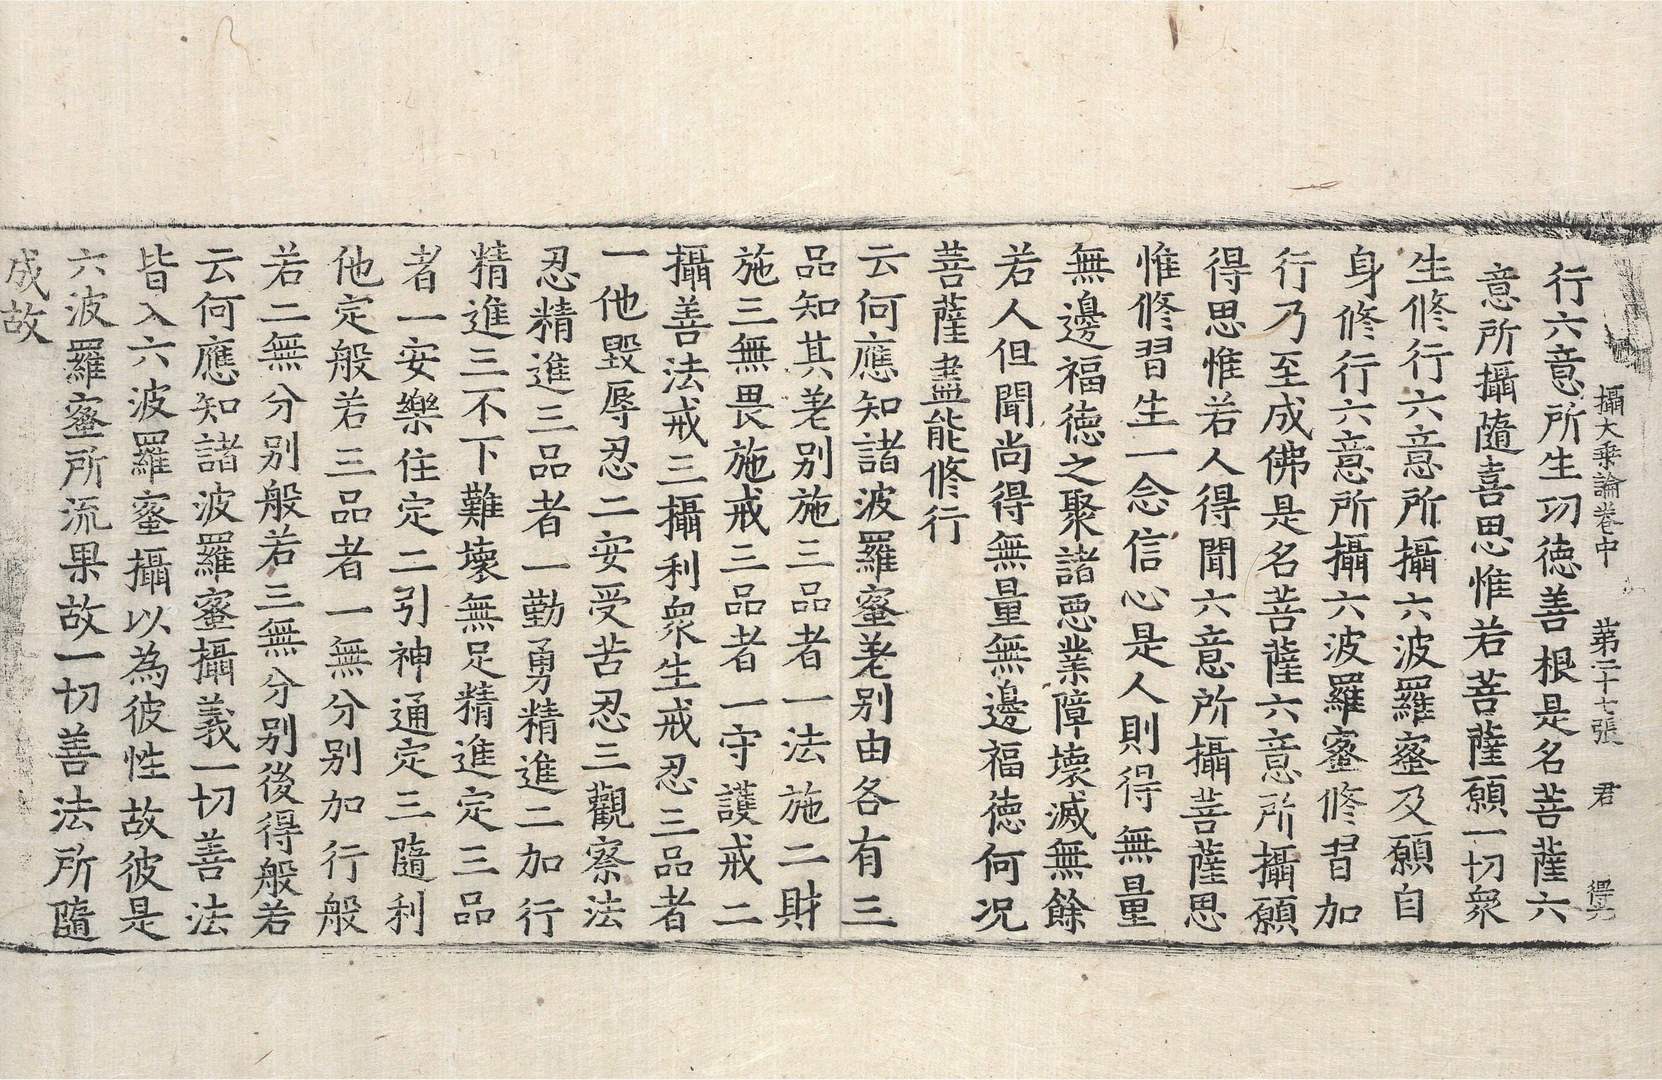 攝大乗論卷中 第二十七張 君
行六意所生功德善根是名菩薩六
意所攝隨喜思惟若菩薩願一切衆
生修行六意所攝六波羅蜜及願自
身修行六意所攝六波羅蜜修習加
行乃至成佛是名菩薩六意所攝願
得思惟若人得聞六意所攝菩薩思
惟修習生一念信心是人則得無量
無邊福德之聚諸惡業障壞滅無餘
若人但聞尚得無量無邊福德何况
菩薩盡能修行
云何應知諸波羅蜜差別由各有三
品知其差別施三品者一法施二財
施三無畏施戒三品者一守護戒二
攝善法戒三攝利衆生戒忍三品者
一他毀辱忍二安受苦忍三觀察法
忍精進三品者一勤勇精進二加行
精進三不下難壞無足精進定三品
者一安樂住定二引神通定三隨利
他定般若三品者一無分別加行般
若二無分別般若三無分別後得般若
云何應知諸波羅蜜攝義一切善法
皆入六波羅蜜攝以為彼性故彼是
六波羅蜜所流果故一切善法所隨
成故